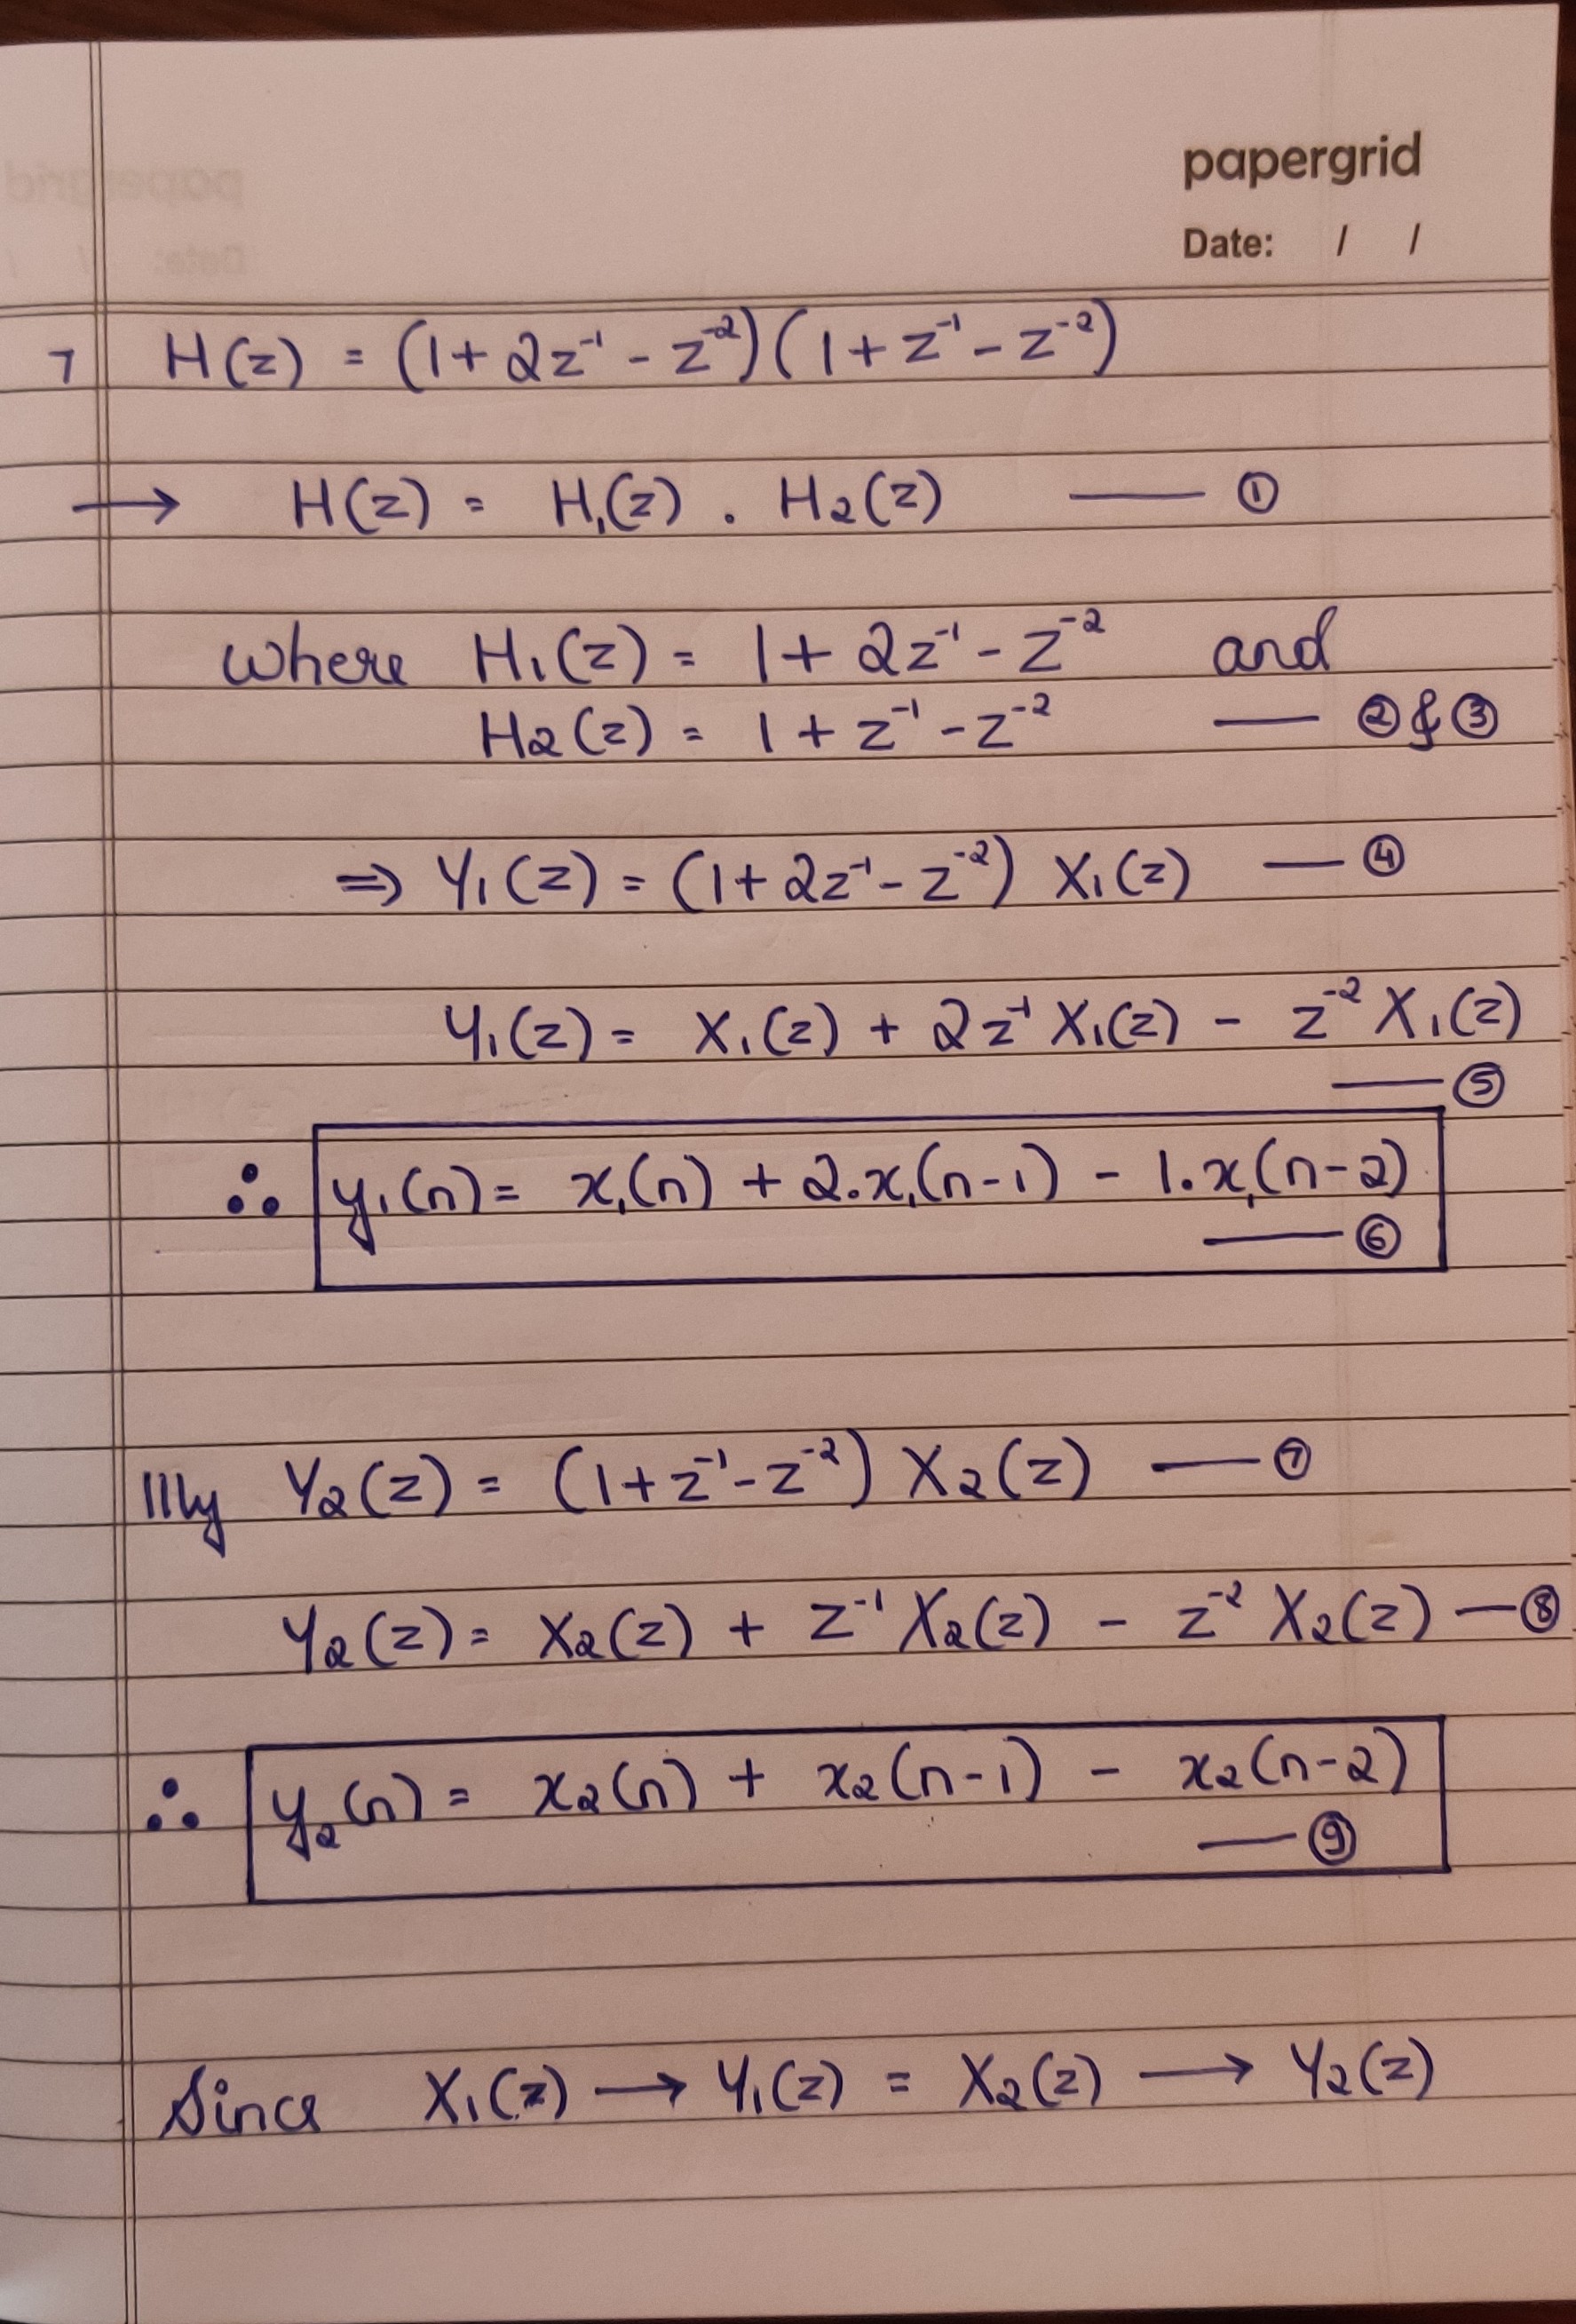 papergrid
Date: / /
7 H(z) = (1 + 2z⁻¹ - z⁻²)(1 + z⁻¹ - z⁻²)
→ H(z) = H₁(z) . H₂(z) — ①
where H₁(z) = 1 + 2z⁻¹ - z⁻² and
H₂(z) = 1 + z⁻¹ - z⁻² — ② & ③
⇒ Y₁(z) = (1 + 2z⁻¹ - z⁻²) X₁(z) — ④
Y₁(z) = X₁(z) + 2z⁻¹ X₁(z) - z⁻² X₁(z)
— ⑤
∴ y₁(n) = x₁(n) + 2.x₁(n-1) - 1.x₁(n-2)
— ⑥
IIIly Y₂(z) = (1 + z⁻¹ - z⁻²) X₂(z) — ⑦
Y₂(z) = X₂(z) + z⁻¹ X₂(z) - z⁻² X₂(z) — ⑧
∴ y₂(n) = x₂(n) + x₂(n-1) - x₂(n-2)
— ⑨
Since X₁(z) → Y₁(z) = X₂(z) → Y₂(z)